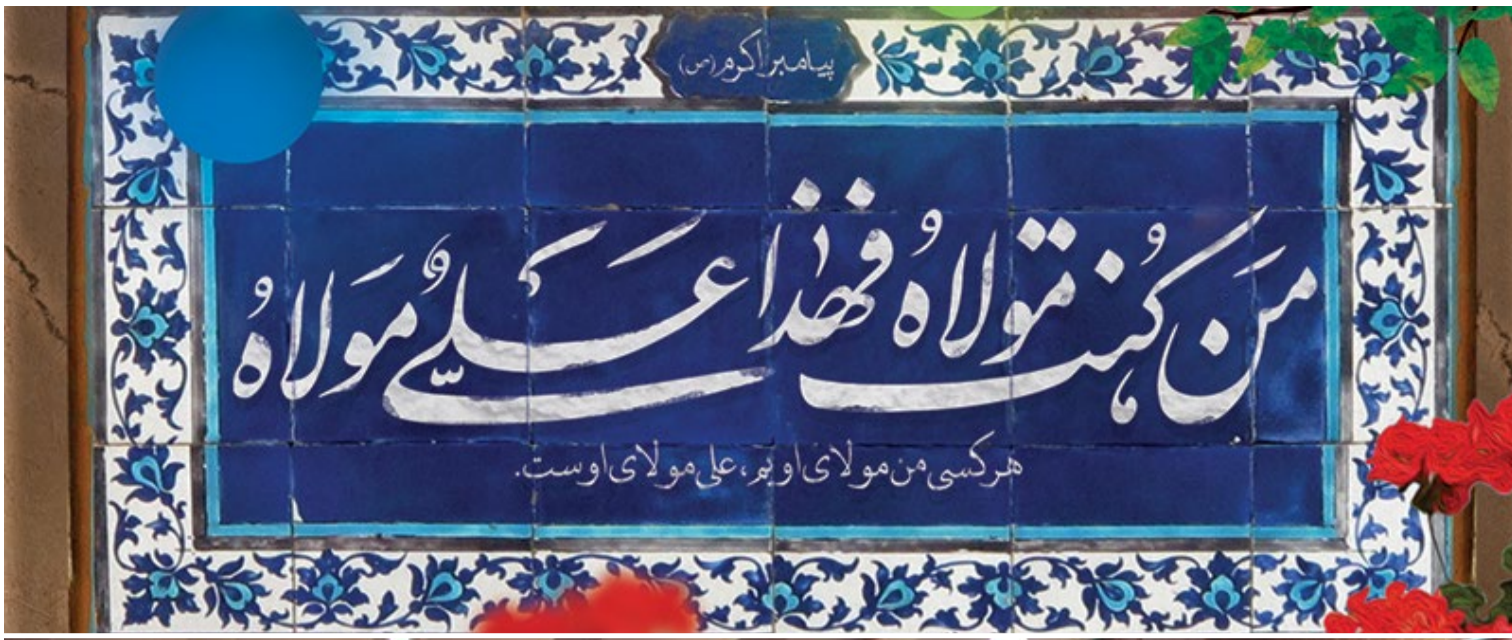 پیامبر اکرم (ص)
مَن کُنتُ مَولاهُ فَهذا عَلیٌّ مَولاهُ
هر کسی من مولای اویم، علی مولای اوست.